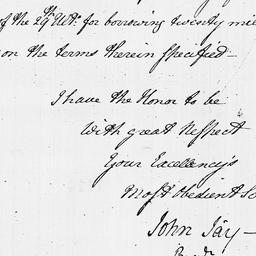 of the 29th Ulto: for borrowing twenty mil
on the terms therein specified—
I have the Honor to be
with great Respect
Your Excellency's
most obedient Se
John Jay—